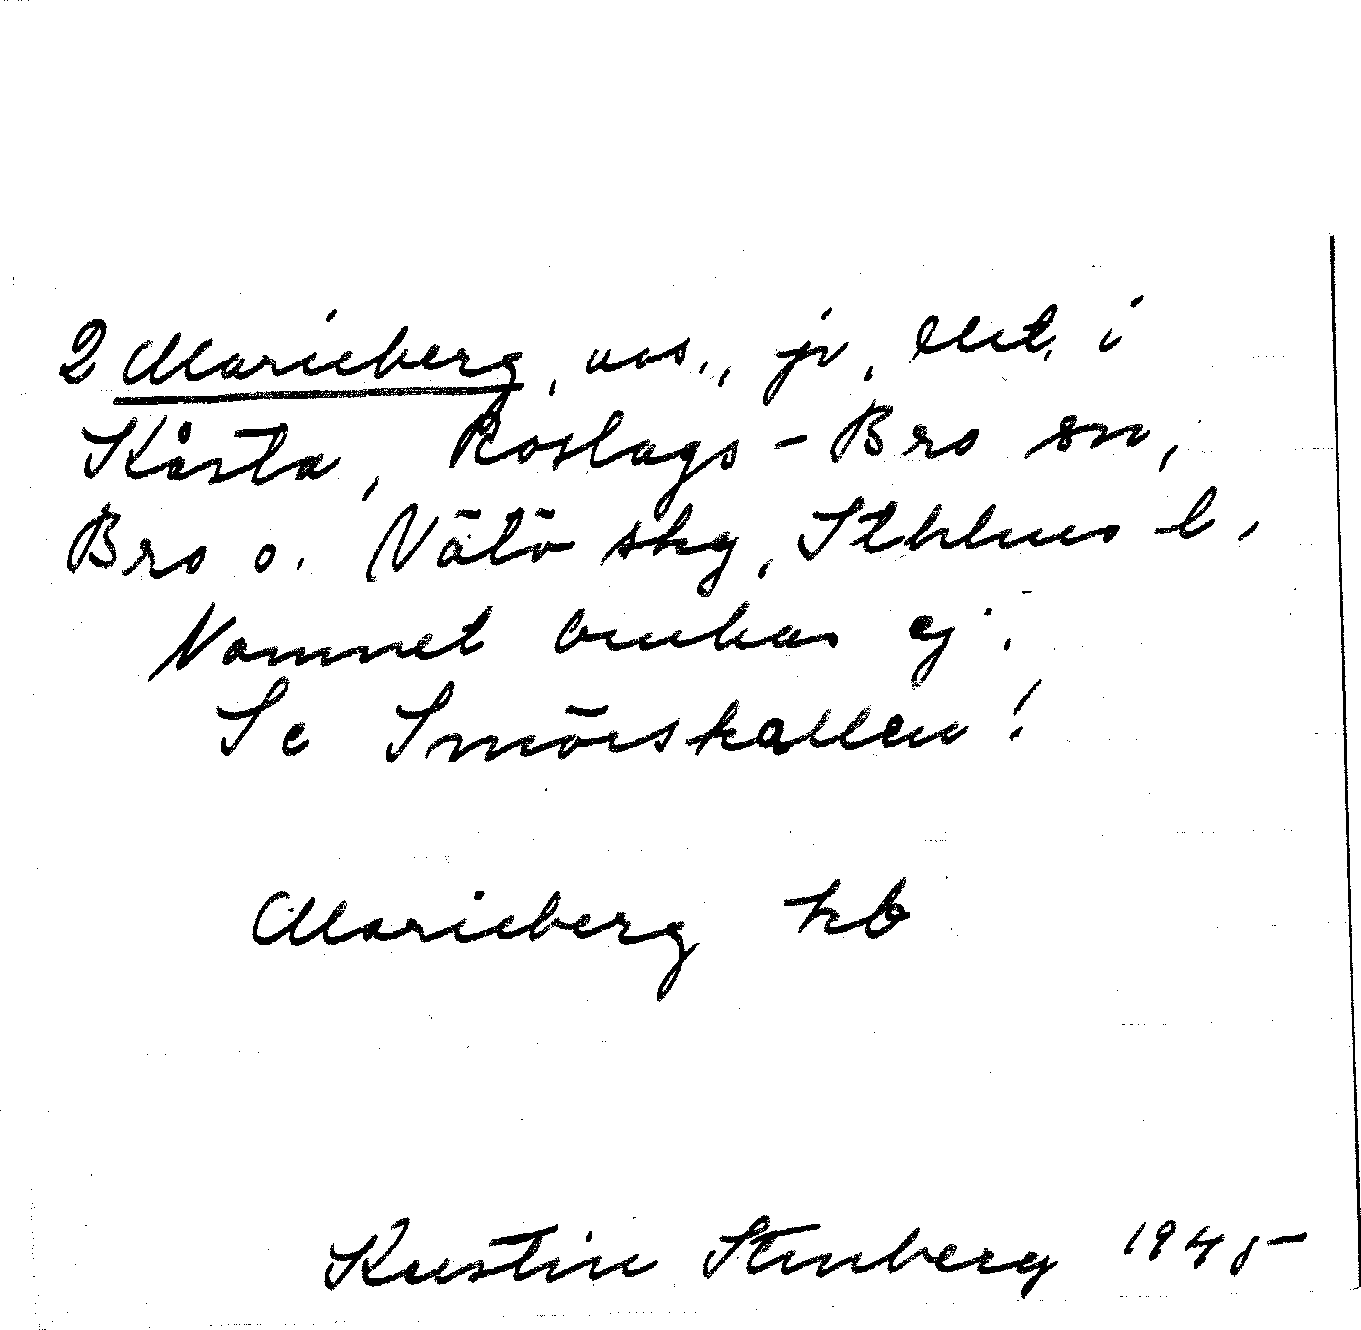 2 Marieberg, avs., jr, lht. i
Kårsta, Roslags-Bro sn,
Bro o. Vätö skg, Sthlms l.
Namnet brukas ej.
Se Smörskallen!
Marieberg kb
Kerstin Stenberg 1945